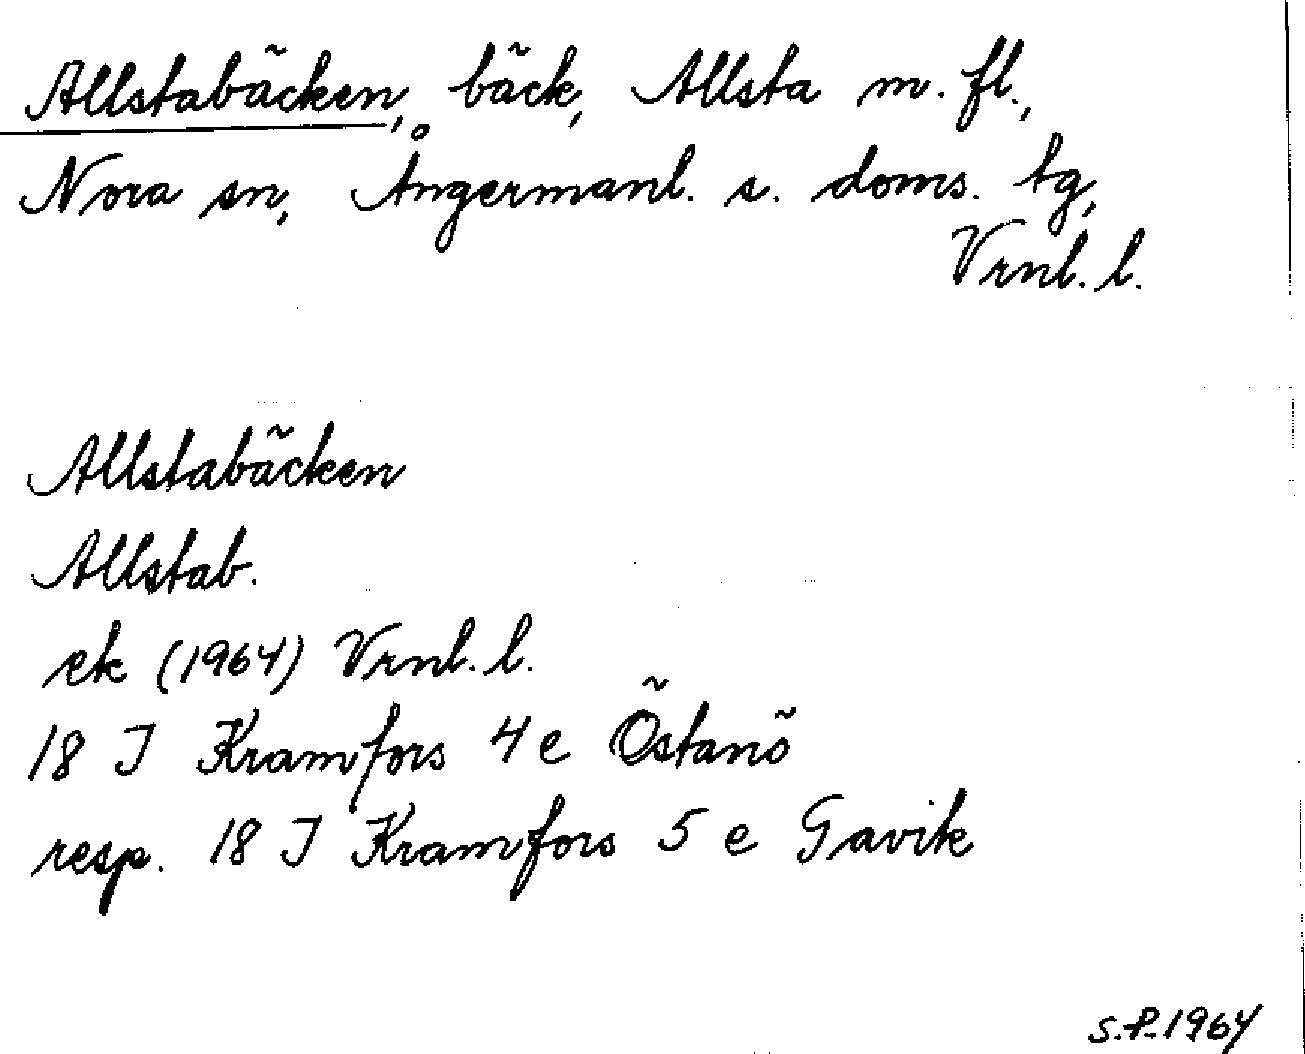 Allstabäcken, bäck, Allsta m. fl.,
Nora sn, Ångermanl. s. doms. tg,
Vrnl. l.
Allstabäcken
Allstab.
ek (1964) Vrnl. l.
18 I Kramfors 4 e Östanö
resp. 18 I Kramfors 5 e Gavik
S.P. 1964